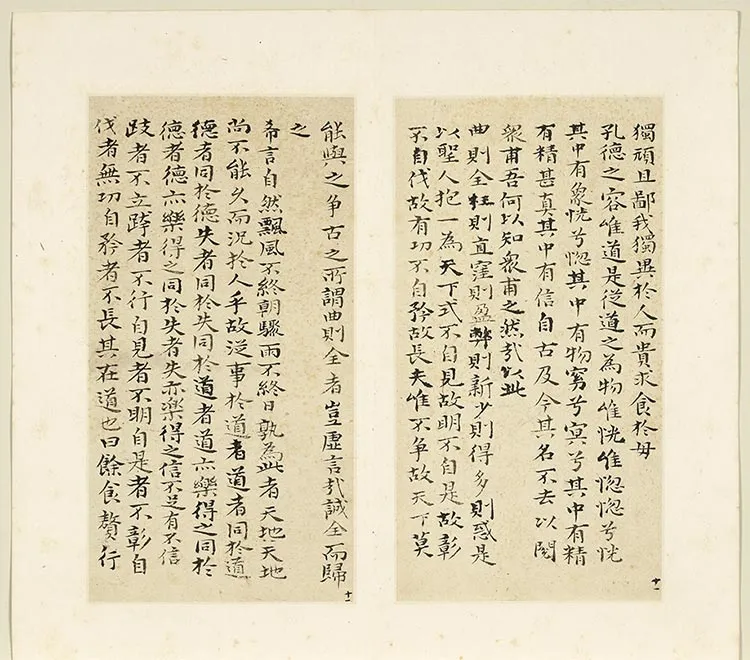 獨頑且鄙我獨異於人而貴求食於母
孔德之容唯道是從道之為物唯恍唯惚惚兮恍
其中有象恍兮惚其中有物窈兮冥兮其中有精
有精甚真其中有信自古及今其名不去以閱
衆甫吾何以知衆甫之然哉以此
曲則全枉則直窪則盈弊則新少則得多則惑是
以聖人抱一為天下式不自見故明不自是故彰
不自伐故有功不自矜故長夫唯不争故天下莫
十一
能與之争古之所謂曲則全者豈虛言哉誠全而歸
之
希言自然飄風不終朝驟雨不終日孰為此者天地天地
尚不能久而況於人乎故從事於道者道者同於道
德者同於德失者同於失同於道者道亦樂得之同於
德者德亦樂得之同於失者失亦樂得之信不足有不信
跂者不立跨者不行自見者不明自是者不彰自
伐者無功自矜者不長其在道也曰餘食贅行
十一